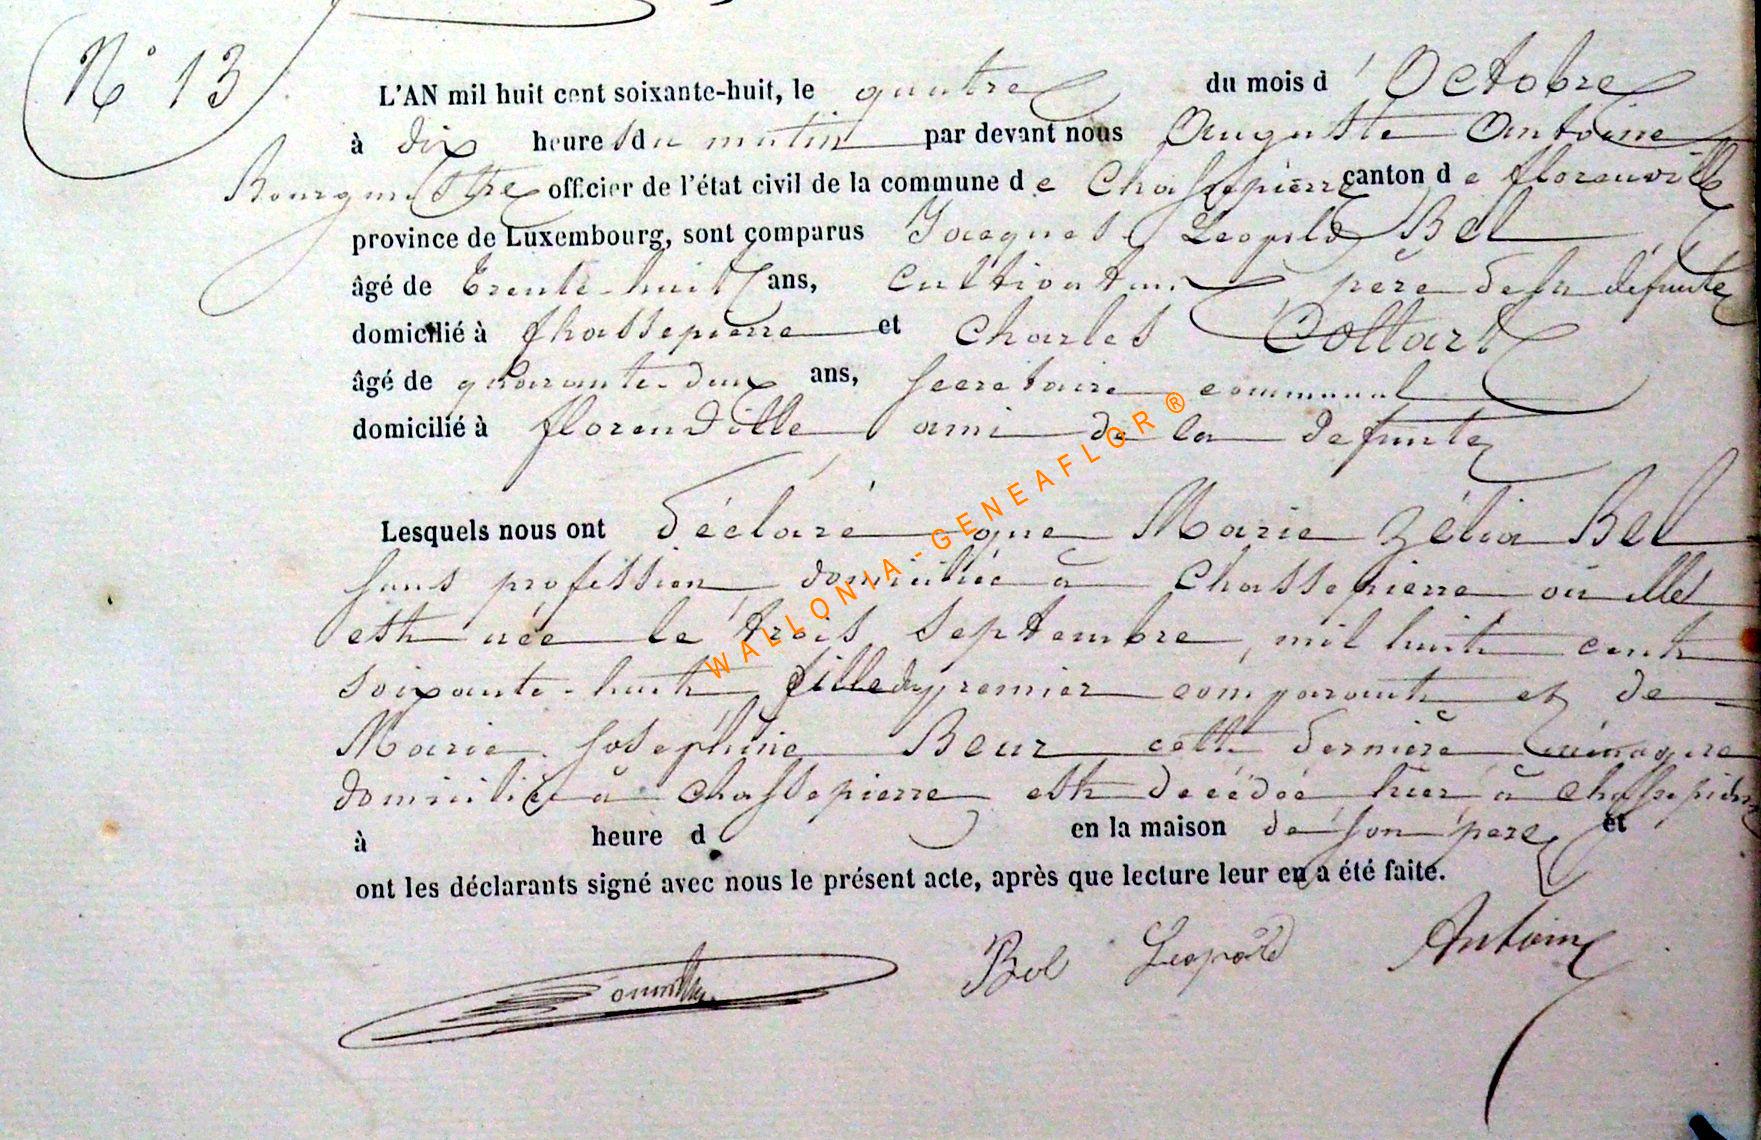 N° 13
L'AN mil huit cent soixante-huit, le quatre du mois d'Octobre
à dix heures du matin par devant nous Auguste Antoine
Bourgmestre officier de l'état civil de la commune de Chassepierre canton de florenville
province de Luxembourg, sont comparus Jacques Leopold Bel
âgé de trente-huit ans, cultivateur père de la défunte
domicilié à Chassepierre et Charles Collart
âgé de quarante-deux ans, secretaire communal
domicilié à florenville ami de la defunte
Lesquels nous ont déclaré que Marie Zélia Bel
sans profession domiciliée à Chassepierre où elle
est née le trois septembre, mil huit cent
soixante-huit, fille du premier comparant et de
Marie Joséphine Beur cette dernière ménagère
domiciliée à Chassepierre est décédée hier à Chassepierre
à heure d en la maison de son père et
ont les déclarants signé avec nous le présent acte, après que lecture leur en a été faite.
Bel Leopold Antoine
WALLONIA-GENEAFLOR ®